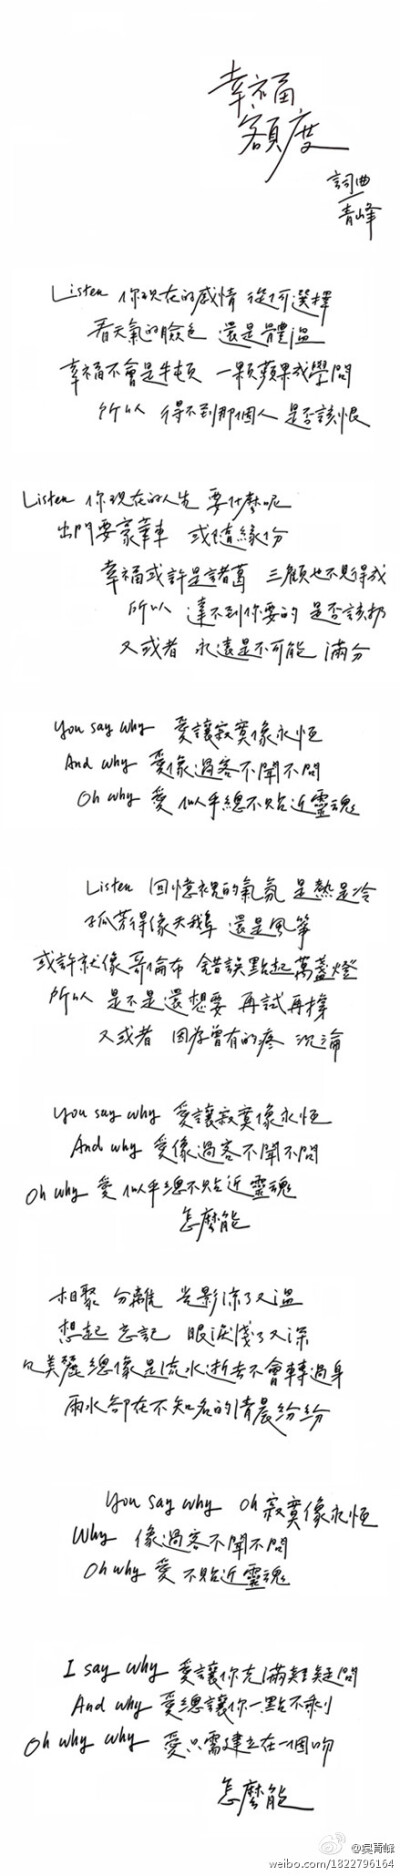 幸福
額度
詞曲
青峰
Listen 你現在的感情 從何選擇
看天氣的臉色 還是體溫
幸福不會是牛頓 一顆蘋果成學問
所以 得不到那個人 是否該恨
Listen 你現在的人生 要什麼呢
出門要豪華車 或隨緣份
幸福或許是諸葛 三顧也不見得成
所以 達不到你要的 是否該扔
又或者 永遠是不可能 滿分
You say why 愛讓寂寞像永恆
And why 愛像過客不聞不問
Oh why 愛似乎總不貼近靈魂
Listen 回憶裡的氣氛 是熱是冷
孤芳得像天鵝 還是風箏
或許就像哥倫布 錯誤點起萬盞燈
所以 是不是還想要 再試再撐
又或者 因為曾有的疼 沉淪
You say why 愛讓寂寞像永恆
And why 愛像過客不聞不問
Oh why 愛似乎總不貼近靈魂
怎麼能
相聚 分離 光影涼了又溫
想起 忘記 眼淚淺了又深
美麗總像是流水逝去不會轉過身
雨水卻在不知名的清晨紛紛
You say why oh 寂寞像永恆
Why 像過客不聞不問
Oh why 愛 不貼近靈魂
I say why 愛讓你充滿疑問
And why 愛總讓你一點不剩
Oh why why 愛只需建立在一個吻
怎麼能
@吳青峰
weibo.com/1822796164